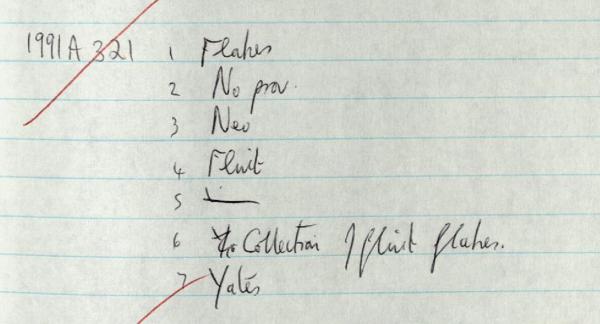 1991A 321 1 Flakes
2 No prov.
3 Neo
4 Flint
5 —
6 Collection of flint flakes.
7 Yates